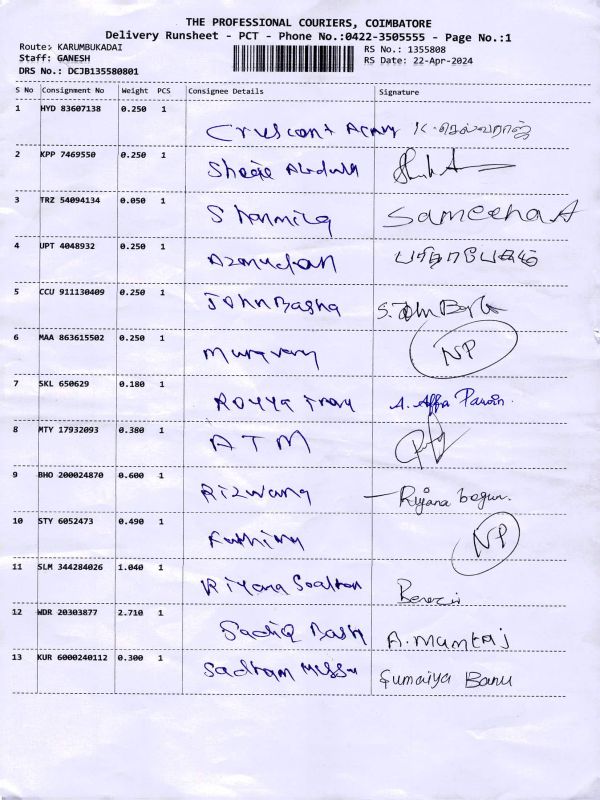 THE PROFESSIONAL COURIERS, COIMBATORE
Delivery Runsheet - PCT - Phone No.:0422-3505555 - Page No.:1
Route:- KARUMBUKADAI RS No.: 1355808
Staff: GANESH RS Date: 22-Apr-2024
DRS No.: DCJB135580801
S No Consignment No Weight PCS Consignee Details Signature
1 HYD 83607138 0.250 1
Crescent
2 KPP 7469550 0.250 1
Abdul
3 TRZ 54094134 0.050 1
Sharmila Sameeha A
4 UPT 4048932 0.250 1
5 CCU 911130409 0.250 1
John Basha S. John Basha
6 MAA 863615502 0.250 1
NP
7 SKL 650629 0.180 1
A. Affra Parvin.
8 MTY 17932093 0.380 1
ATM
9 BHO 200024870 0.600 1
Rizwana Rijana begum.
10 STY 6052473 0.490 1
Fathima NP
11 SLM 344284026 1.040 1
Riyana
12 WDR 20303877 2.710 1
Sadiq Bash A. Mumtaj
13 KUR 6000240112 0.300 1
Sadham Sumaiya Banu